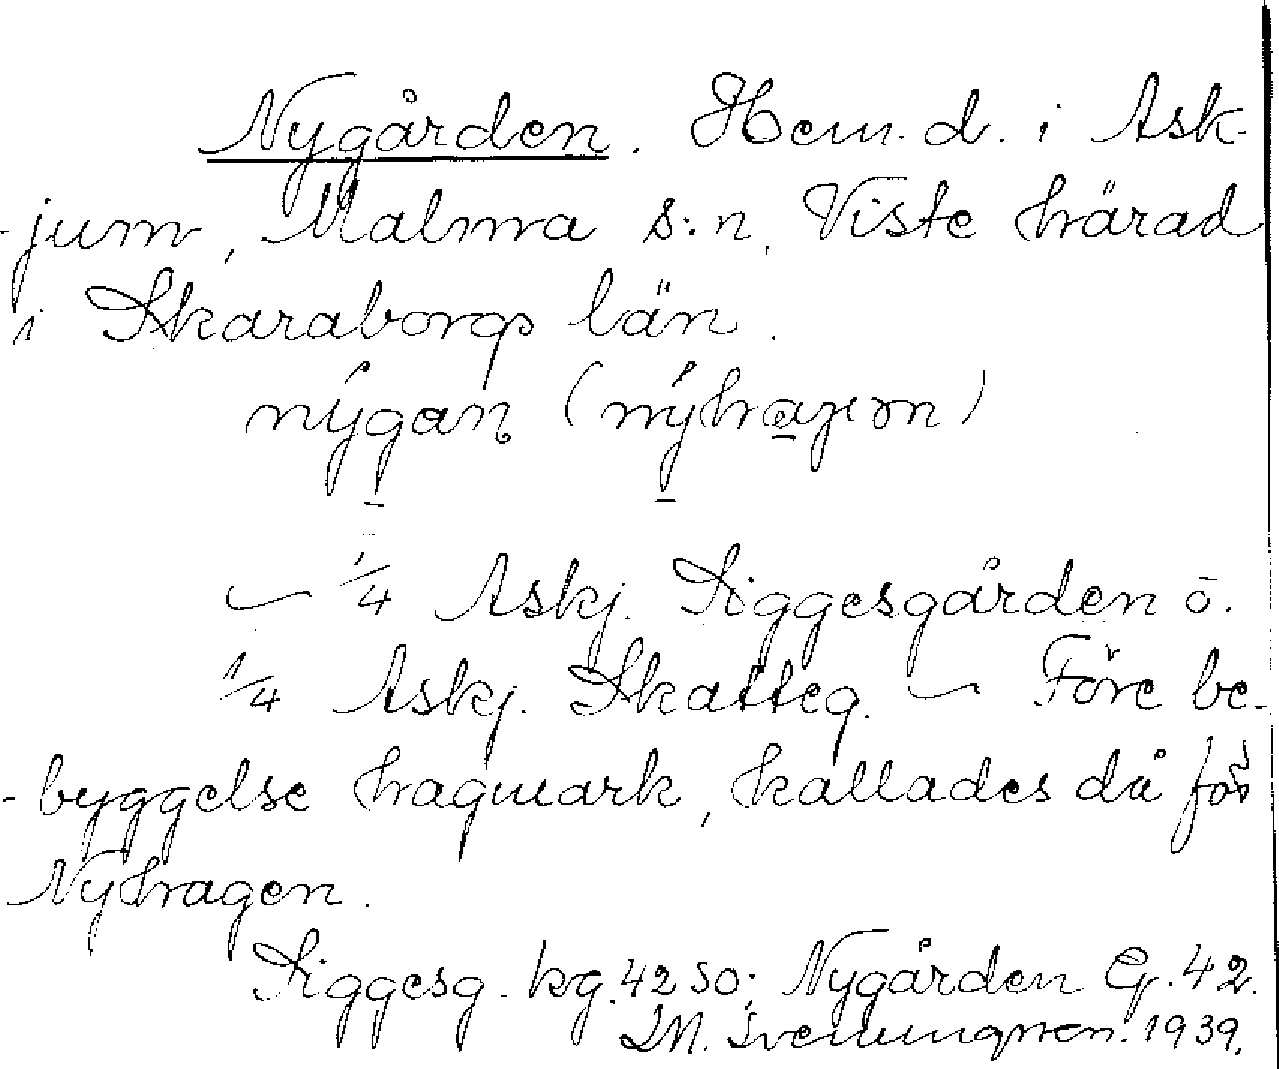 Nygården. Hem.d. i Ask-
-jum, Malma s:n, Viste härad
i Skaraborgs län.
nýgaɳ (nýhaγɪɔn)
– 1/4 Askj. Siggesgården ö.
1/4 Askj. Skatteg. – Före be-
-byggelse hagmark, kallades då för
Nyhagen.
Siggesg. kg. 42 SO; Nygården G. 42.
M. 1939.